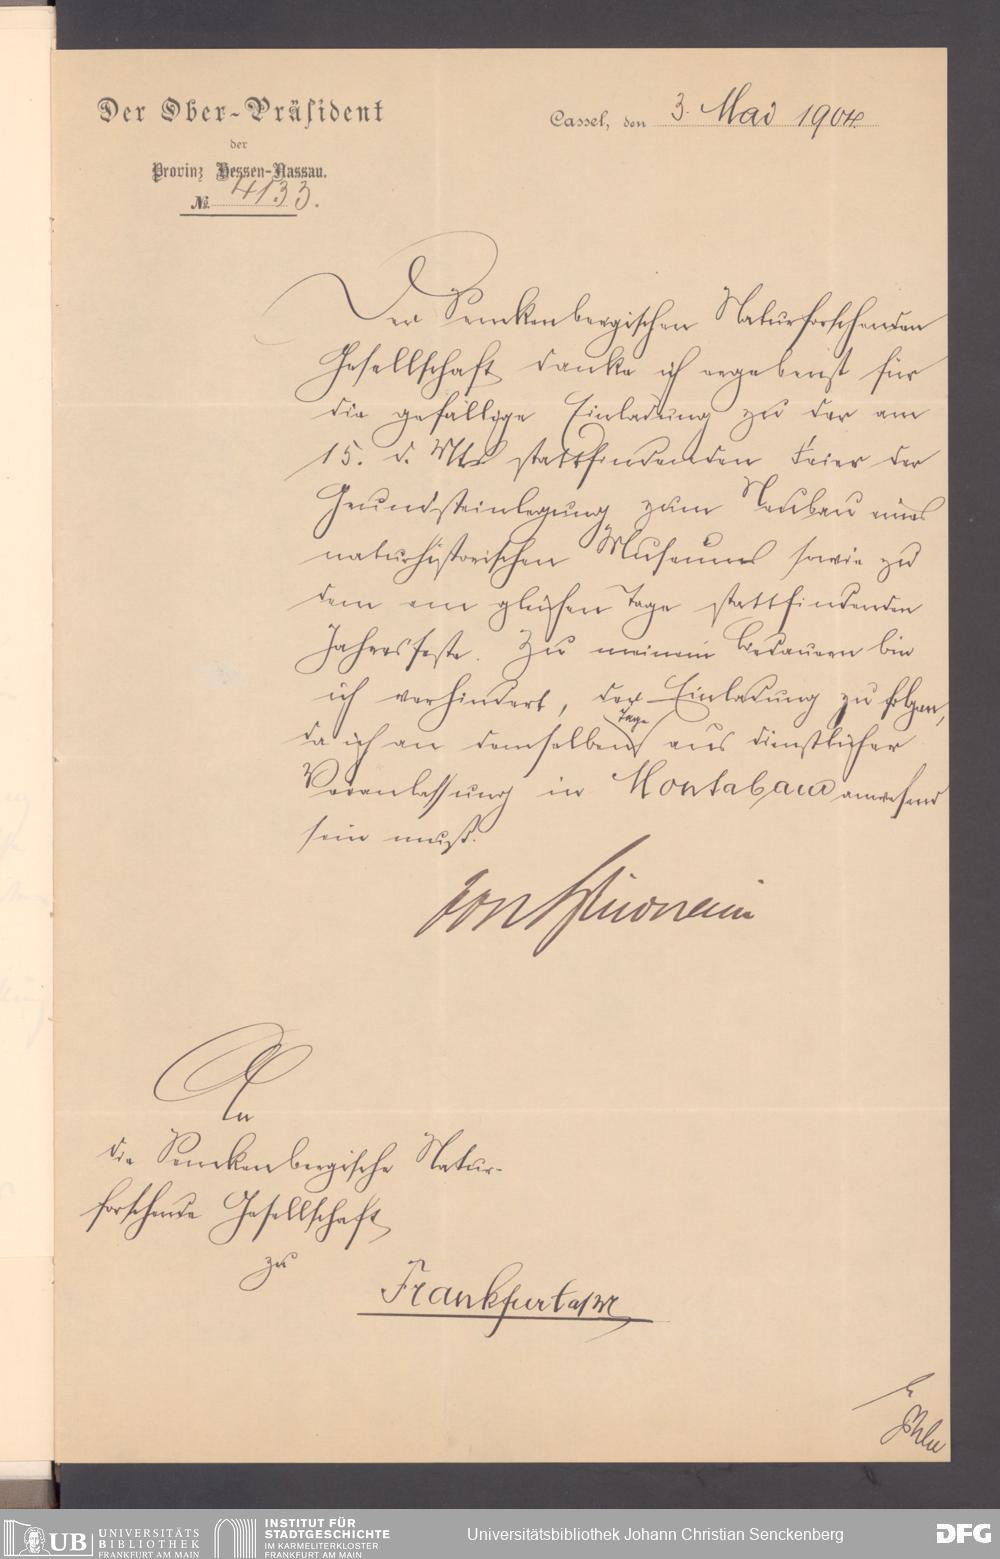 Der Ober-Präsident
der
Provinz Hessen-Nassau.
№ 4133.
Cassel, den 3. Mai 1904.
Der Senckenbergischen Naturforschenden
Gesellschaft danke ich ergebenst für
die gefällige Einladung zu der am
15. d. Mts stattfindenden Feier der
Grundsteinlegung zum Neubau eines
naturhistorischen Museums sowie zu
dem am gleichen Tage stattfindenden
Jahresfeste. Zu meinem Bedauern bin
ich verhindert, der Einladung zu folgen,
da ich an demselben Tage aus dienstlicher
Veranlassung in Montabaur anwesend
sein muß.
von
An
die Senckenbergische Natur-
forschende Gesellschaft
zu
Frankfurt a/M
UB UNIVERSITÄTS
BIBLIOTHEK
FRANKFURT AM MAIN
INSTITUT FÜR
STADTGESCHICHTE
IM KARMELITERKLOSTER
FRANKFURT AM MAIN
Universitätsbibliothek Johann Christian Senckenberg
DFG